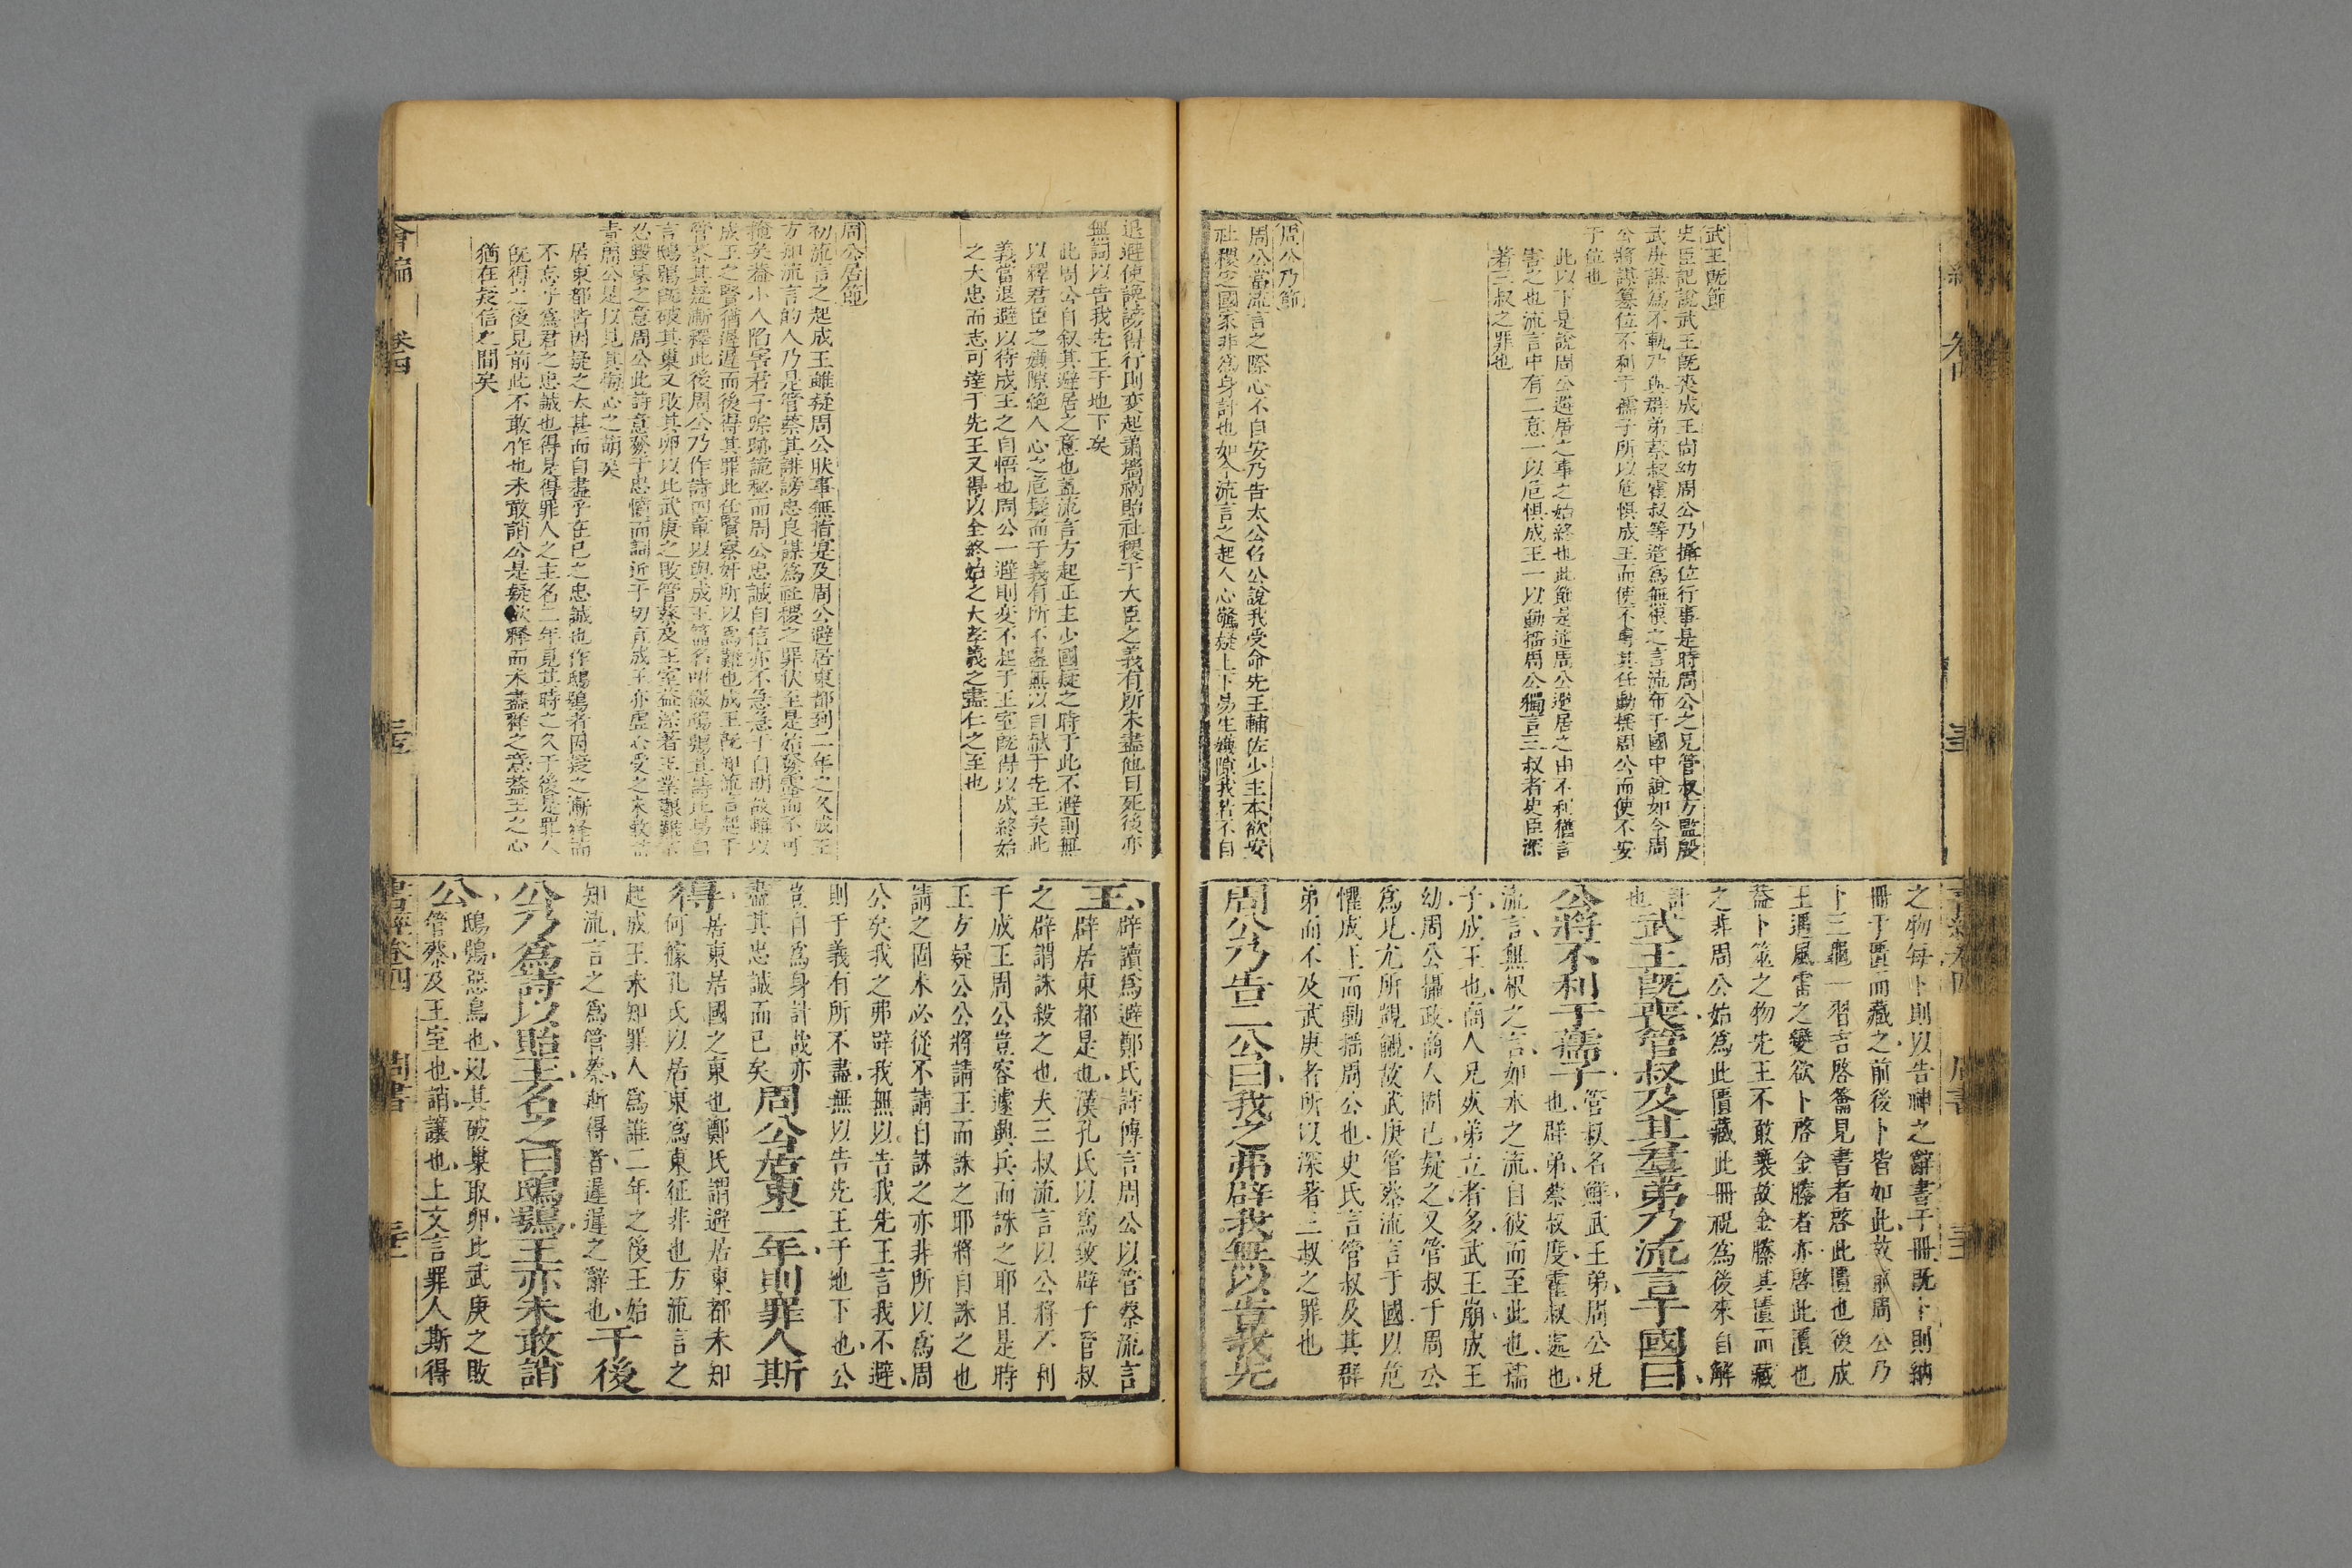 武王既節
史臣記說武王既喪成王尚幼周公乃攝位行事是時周公之兄管叔方監殷
武庚謀為不軌乃與群弟蔡叔霍叔等造為無根之言流布于國中說如今周
公將謀篡位不利于孺子所以危惧成王而使不專其任動搖周公而使不安
于位也
此以下是說周公避居之事之始終也此節是述周公避居之由不利猶言
害之也流言中有二意一以危惧成王一以動搖周公獨言三叔者史臣深
著三叔之罪也
周公乃節
周公當流言之際心不自安乃告太公召公說我受命先王輔佐少主本欲安
社稷定國家非為身計也如今流言之起人心驚疑上下易生嫌隙我若不自
之物每卜則以告神之辭書于冊既卜則納
冊于匱而藏之前後卜皆如此故前周公乃
卜三龜一習吉啓籥見書者啓此匱也後成
王遇風雷之變欲卜啓金縢者亦啓此匱也
葢卜筮之物先王不敢褻故金縢其匱而藏
之非周公始為此匱藏此冊祝為後來自解
計也
武王既喪管叔及其羣弟乃流言于國曰
公將不利于孺子管叔名鮮武王弟周公兄也群弟蔡叔度霍叔處也
流言無根之言如水之流自彼而至此也孺
子成王也商人兄死弟立者多武王崩成王
幼周公攝政商人固已疑之又管叔于周公
為兄尤所覬覦故武庚管蔡流言于國以危
懼成王而動搖周公也史氏言管叔及其群
弟而不及武庚者所以深著三叔之罪也
周公乃告二公曰我之弗辟我無以告我先
退避使讒謗得行則变起蕭墻禍貽社稷于大臣之義有所未盡他日死後亦
無詞以告我先王于地下矣
此周公自叙其避居之意也葢流言方起正主少國疑之時于此不避則無
以釋君臣之嫌隙絶人心之危疑而于義有所不盡無以自献于先王矣此
義當退避以待成王之自悟也周公一避則变不起于王室既得以成終始
之大忠而志可達于先王又得以全終始之大孝義之盡仁之至也
周公居節
初流言之起成王雖疑周公狀事無指寔及周公避居東都到二年之久成王
方知流言的人乃是管蔡其誹謗忠良謀為社稷之罪伏至是始發露而不可
掩矣葢小人陷害君子踪跡詭秘而周公忠誠自信亦不急急于自明故雖以
成王之賢猶遲遲而後得其罪此任賢察奸所以為難也成王既知流言起于
管蔡其疑漸釋此後周公乃作詩四章以與成王篇名叫做鴟鴞其詩托為鳥
言鴟鴞既破其巢又取其卵以比武庚之敗管蔡及王室葢深著王業艱難不
忍毀壞之意周公此詩意發于忠憤而詞近于切直成王亦虛心受之未敢誚
責周公是以見其悔心之萌矣
居東都皆因疑之太甚而自盡乎在已之忠誠也作鴟鴞者因疑之漸釋而
不忘乎為君之忠誠也得是得罪人之主名二年見其時之久于後是罪人
既得之後見前此不敢作也未敢誚公是疑欲釋而未盡釋之意葢王之心
猶在疑信之間矣
王辟讀為避鄭氏詩傳言周公以管蔡流言
辟居東都是也漢孔氏以為致辟于管叔
之辟謂誅殺之也夫三叔流言以公將不利
于成王周公豈容遽興兵而誅之耶且是時
王方疑公公將請王而誅之耶將自誅之也
請之固未必從不請自誅之亦非所以為周
公矣我之弗辟我無以告我先王言我不避
則于義有所不盡無以告先王于地下也公
豈自為身計哉亦盡其忠誠而已矣周公居東二年則罪人斯
得居東居國之東也鄭氏謂避居東都未知
何據孔氏以居東為東征非也方流言之
起成王未知罪人為誰二年之後王始
知流言之為管蔡斯得者遲遲之辭也于後
公乃為詩以貽王名之曰鴟鴞王亦未敢誚
公鴟鴞惡鳥也以其破巢取卵比武庚之敗
管蔡及王室也誚讓也上文言罪人斯得
會編 卷四
書經卷四 周書